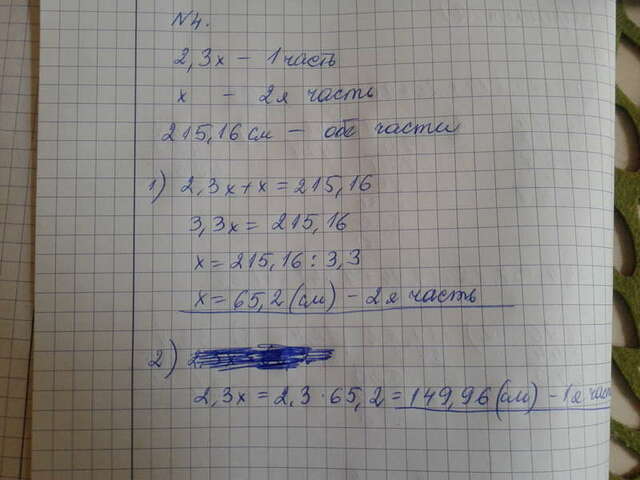 №4.
2,3x – 1 часть
x – 2я часть
215,16 см – обе части
1) 2,3x+x=215,16
3,3x= 215,16
x=215,16:3,3
x=65,2(см) – 2я часть
2)
2,3x=2,3·65,2=149,96(см) – 1я част